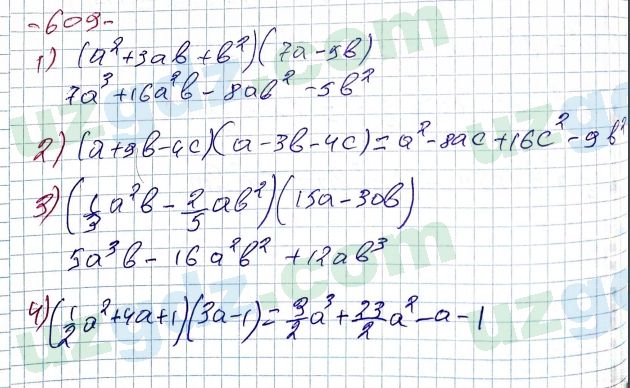 -609-
1) (a²+3ab+b²)(7a-5b)
7a³+16a²b-8ab²-5b²
2) (a+3b-4c)(a-3b-4c)=a²-8ac+16c²-9b²
3) (1/3a²b-2/5ab²)(15a-30b)
5a³b-16a²b²+12ab³
4) (1/2a²+4a+1)(3a-1)=3/2a³+23/2a²-a-1